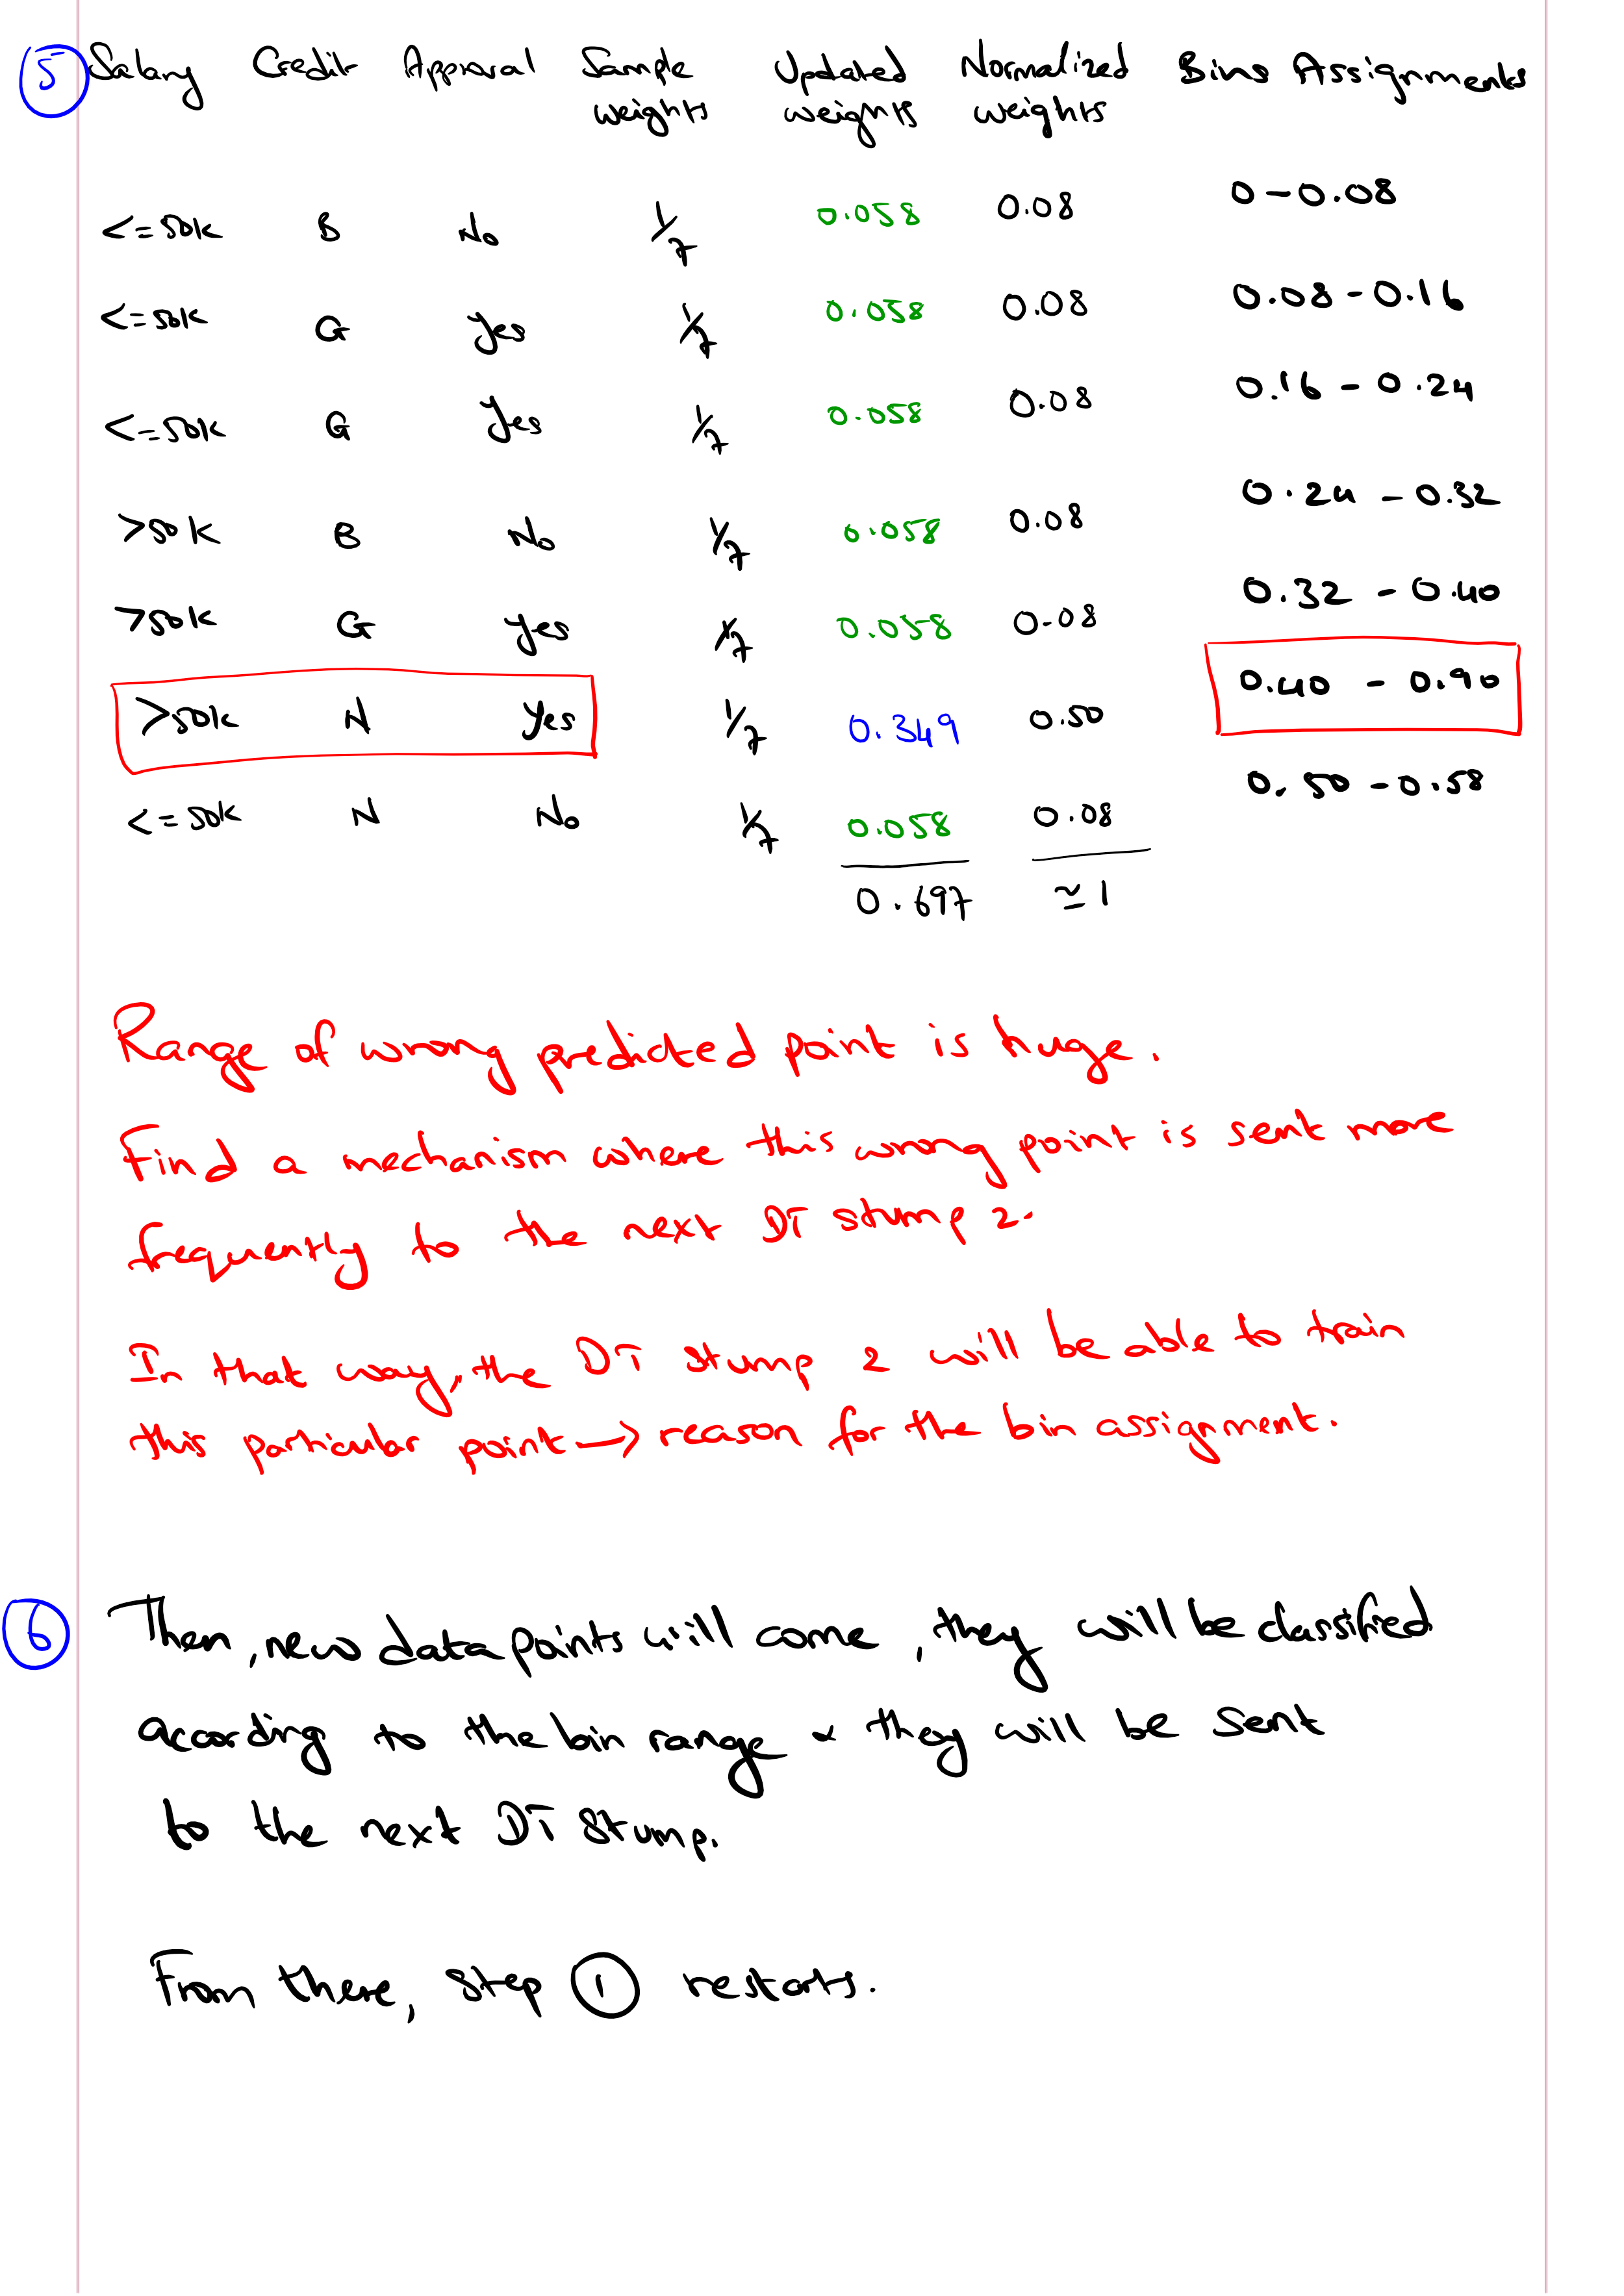 5 Salary Credit Approval Sample weights Updated weights Normalized weights Bins Assignments
<=50k B No 1/7 0.058 0.08 0-0.08
<=50k G Yes 1/7 0.058 0.08 0.08-0.16
<=50k G Yes 1/7 0.058 0.08 0.16-0.24
>50k B No 1/7 0.058 0.08 0.24-0.32
>50k G Yes 1/7 0.058 0.08 0.32-0.40
>50k N Yes 1/7 0.349 0.50 0.40-0.90
<=50k N No 1/7 0.058 0.08 0.50-0.58
0.697 ≃1
Range of wrong predicted point is huge.
Find a mechanism where this wrong point is sent more
frequently to the next DT stump 2.
In that way, the DT stump 2 will be able to train
this particular point → reason for the bin assignment.
6 Then, new datapoints will come, they will be classified
according to the bin range & they will be sent
to the next DT Stump.
From there, step 1 restarts.